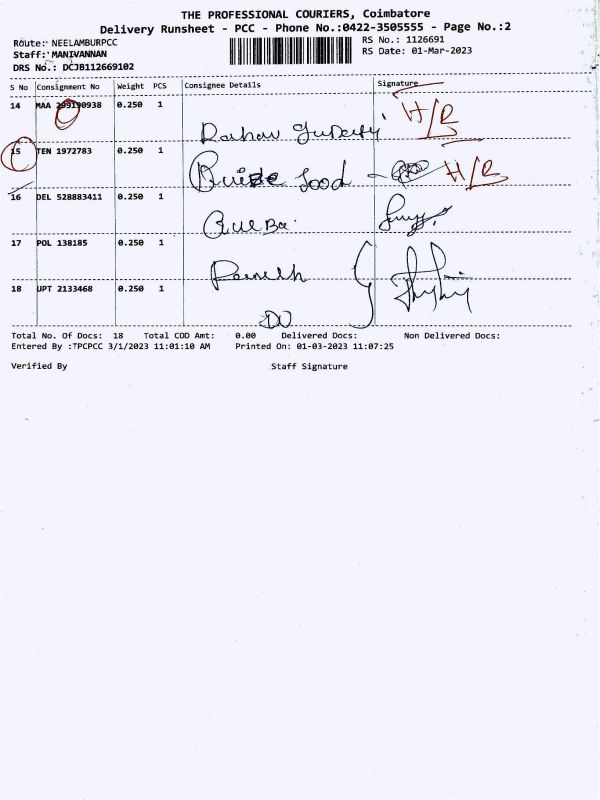 THE PROFESSIONAL COURIERS, Coimbatore
Delivery Runsheet - PCC - Phone No.:0422-3505555 - Page No.:2
Route: NEELAMBURPCC
RS No.: 1126691
Staff: MANIVANNAN
RS Date: 01-Mar-2023
DRS No.: DCJB112669102
S No Consignment No Weight PCS Consignee Details Signature
14 MAA 299190938 0.250 1
H/R
15 TEN 1972783 0.250 1
food H/R
16 DEL 528883411 0.250 1
17 POL 138185 0.250 1
18 UPT 2133468 0.250 1
DO
Total No. Of Docs: 18 Total COD Amt: 0.00 Delivered Docs: Non Delivered Docs:
Entered By :TPCPCC 3/1/2023 11:01:10 AM Printed On: 01-03-2023 11:07:25
Verified By Staff Signature